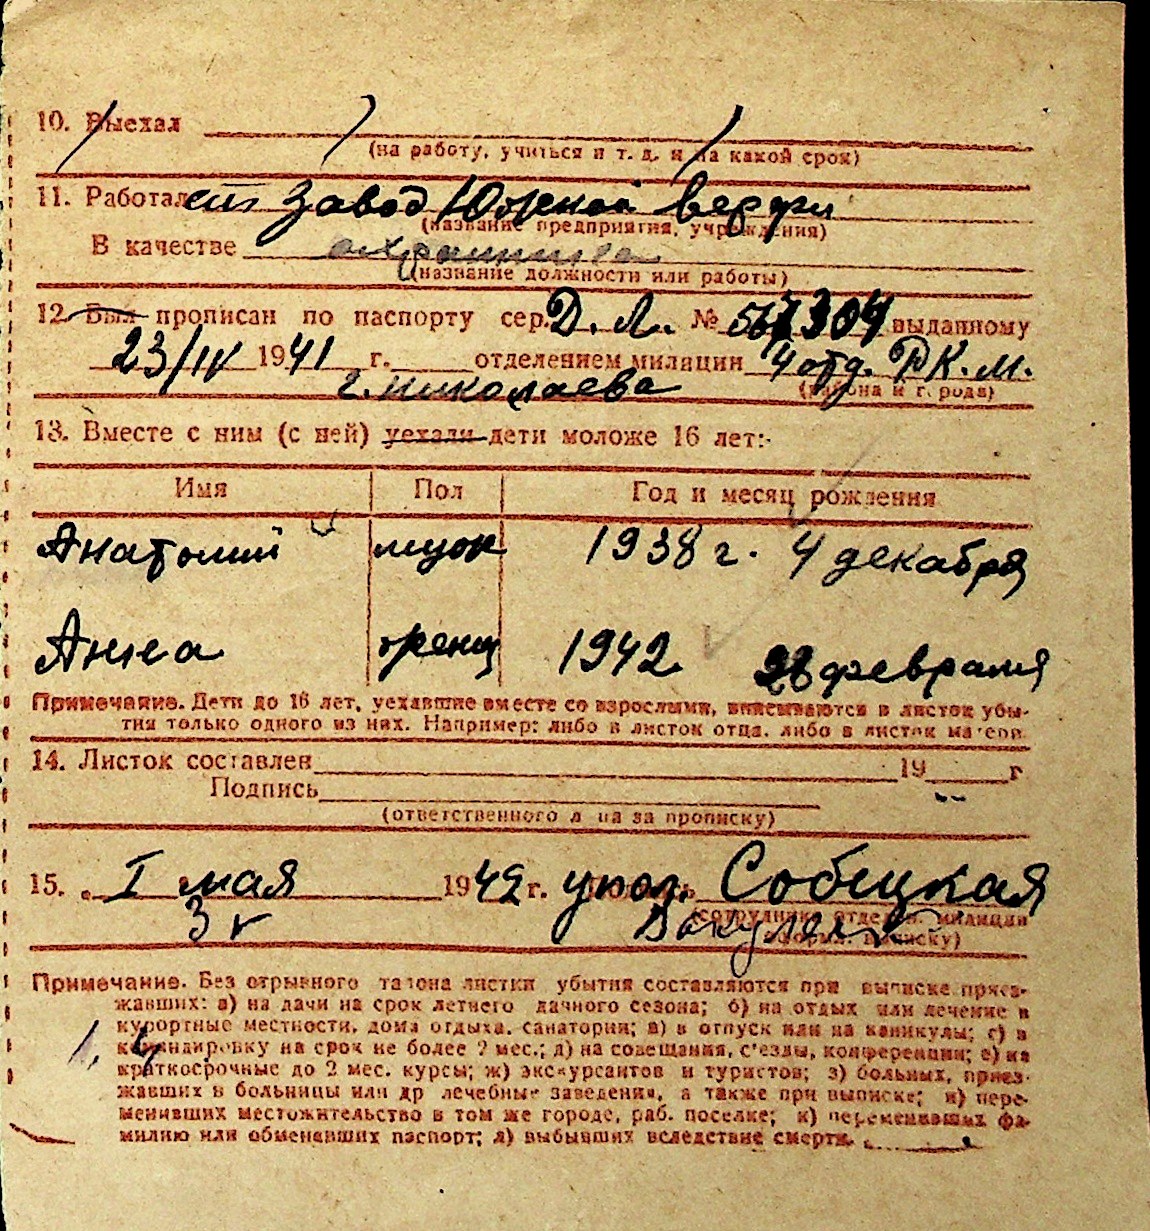 10. Выехал
(на работу, учиться и т. д. и на какой срок)
11. Работает Завод Южной верфи
(название предприятия, учреждения)
В качестве охранника
(название должности или работы)
12. Был прописан по паспорту сер. Д. Л. № 567304 выданному
23/IV 1941 г. отделением милиции 4 отд. Р.К.М.
г. Николаева (района и города)
13. Вместе с ним (с ней) уехали дети моложе 16 лет:
Имя Пол Год и месяц рождения
Анатолий муж 1938 г. 4 декабря
Анна женщ 1942 28 февраля
Примечание. Дети до 16 лет, уехавшие вместе со взрослыми, вписываются в листок убы-
тия только одного из них. Например: либо в листок отца, либо в листок матери.
14. Листок составлен 19 г
Подпись
(ответственного лица за прописку)
15. I мая 1942 г. упол. Собецкая
3 г
(сотрудник отдел. милиции
оформл. выписку)
Примечание. Без отрывного талона листки убытия составляются при выписке приез-
жавших: а) на дачи на срок летнего дачного сезона; б) на отдых или лечение в
курортные местности, дома отдыха, санатории; в) в отпуск или на каникулы; г) в
командировку на срок не более 2 мес.; д) на совещания, с'езды, конференции; е) на
краткосрочные до 2 мес. курсы; ж) экскурсантов и туристов; з) больных, приез-
жавших в больницы или др лечебные заведения, а также при выписке; и) пере-
менивших местожительство в том же городе, раб. поселке; к) переменивших фа-
милию или обменявших паспорт; л) выбывших вследствие смерти.